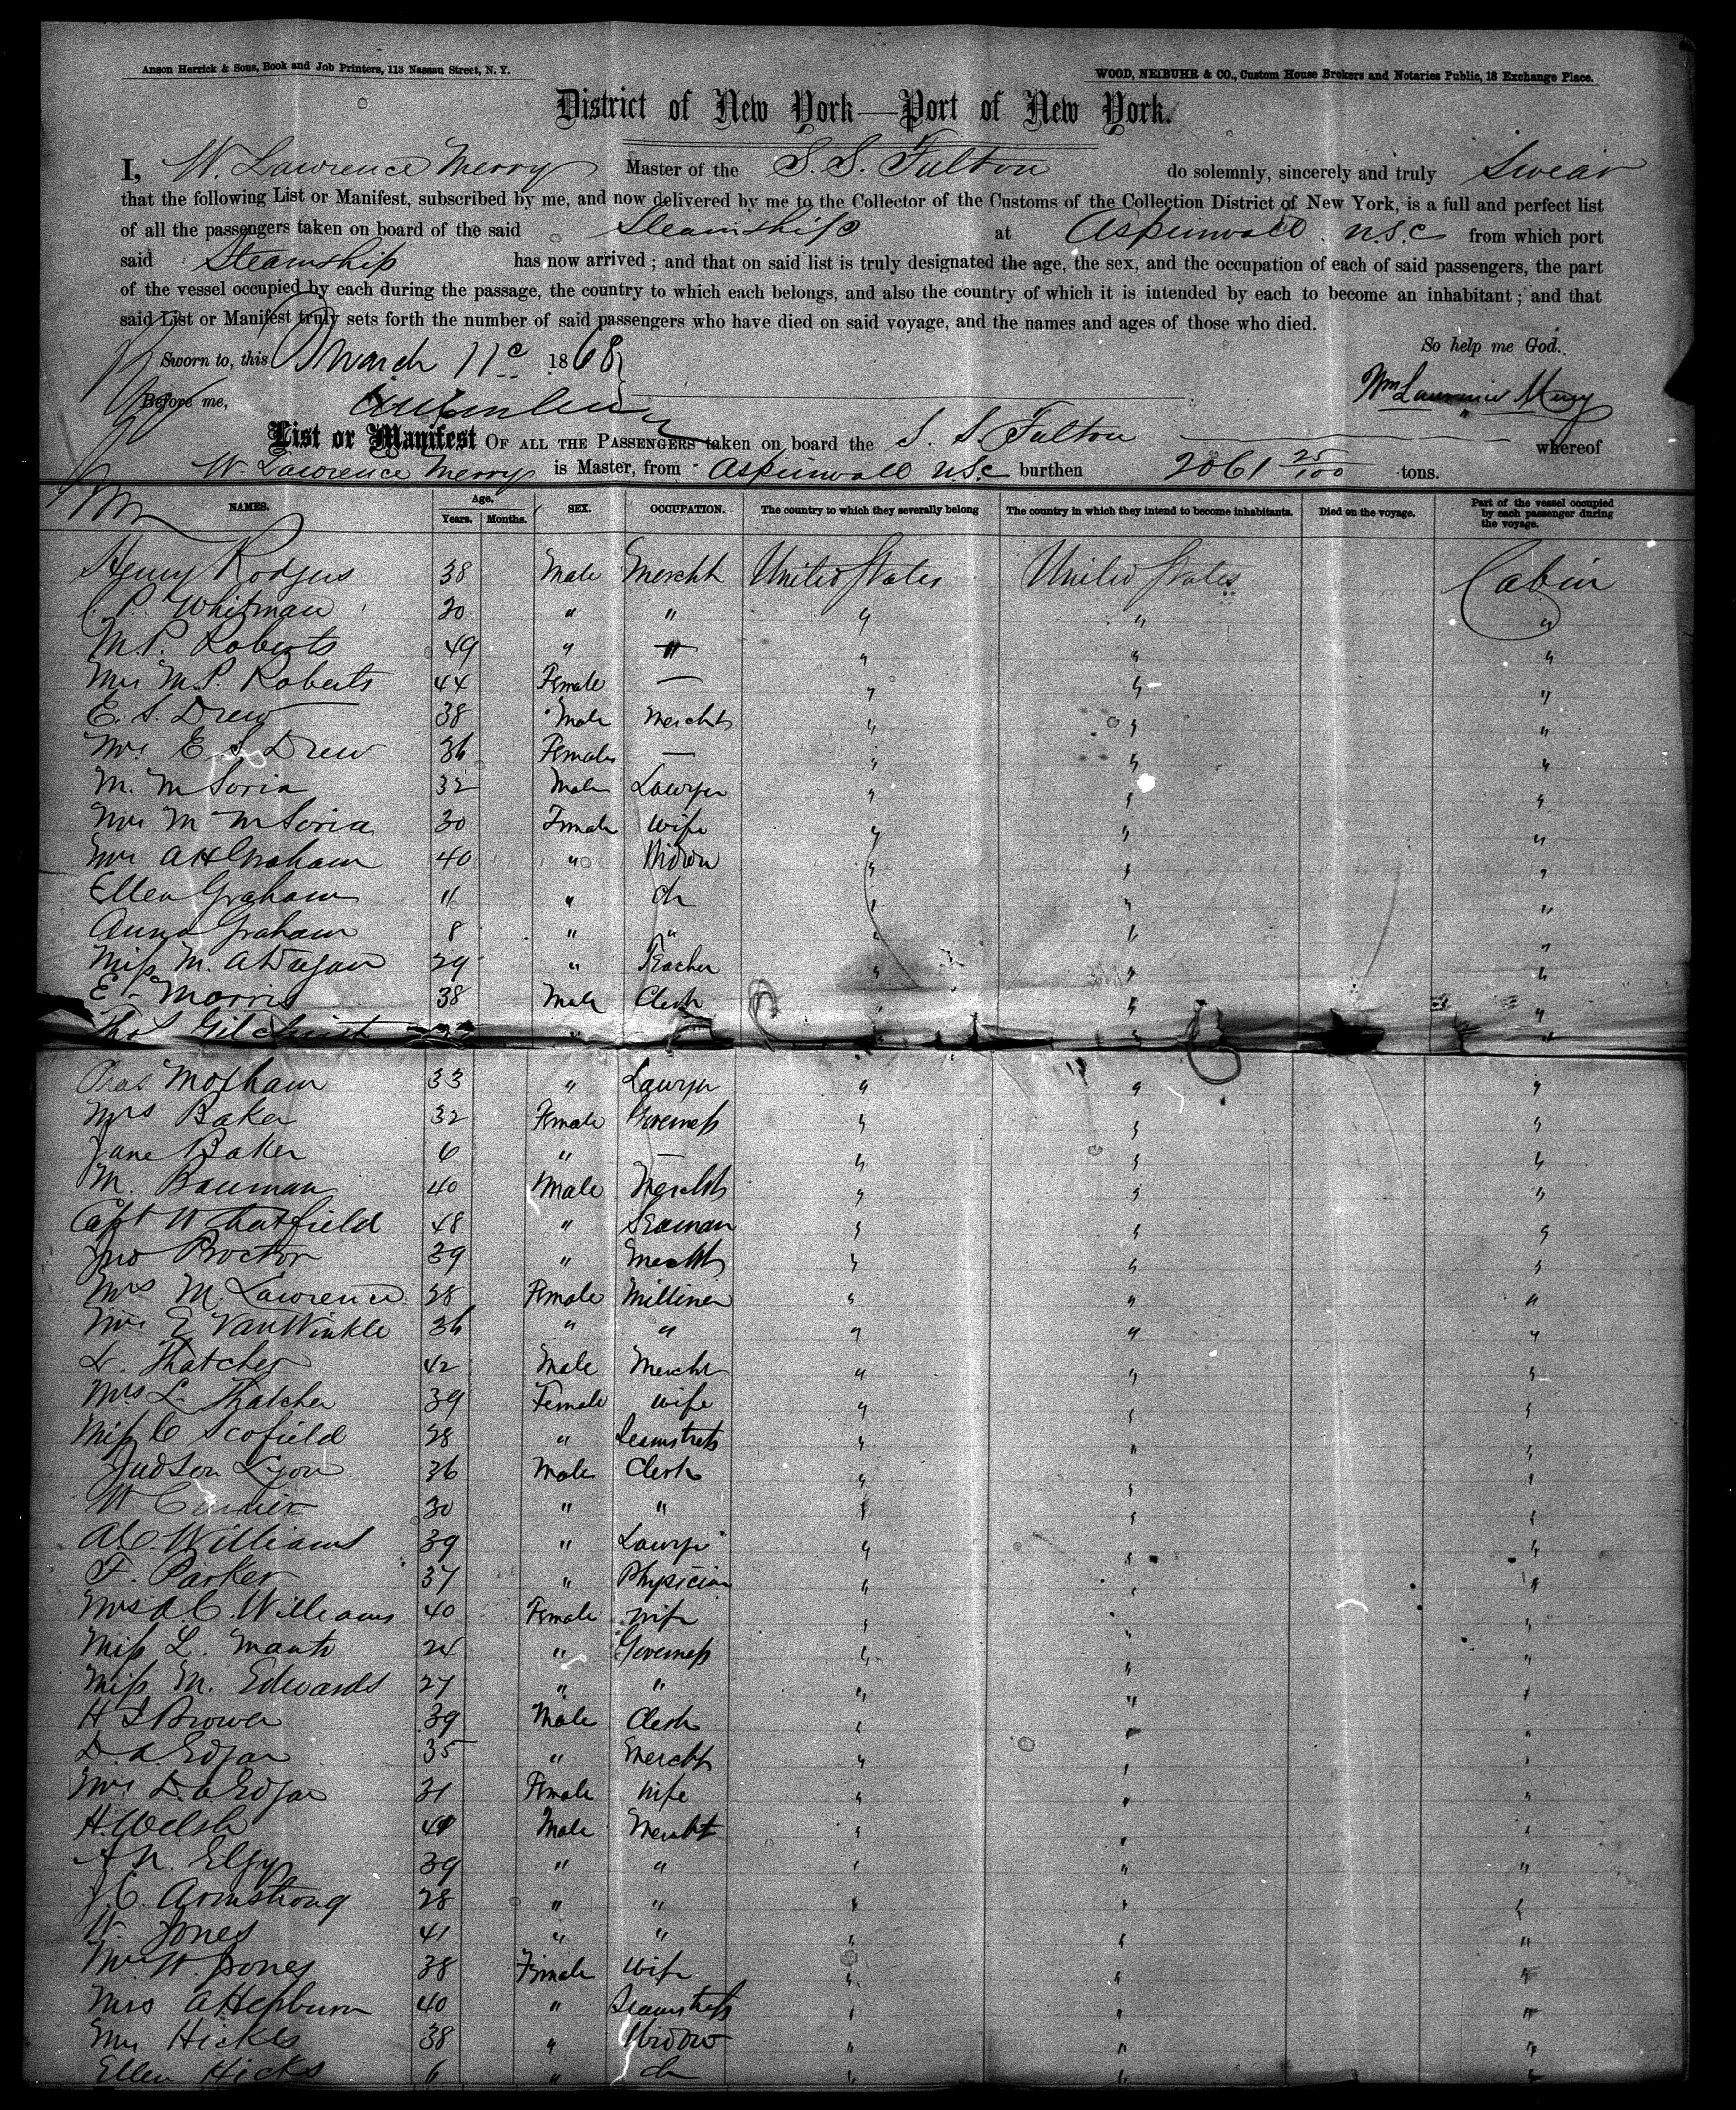 Anson Herrick & Sons, Book and Job Printers, 113 Nassau Street, N. Y.
WOOD, NEIBUHR & CO., Custom House Brokers and Notaries Public, 18 Exchange Place.
District of New York—Port of New York.
I, W. Lawrence Merry Master of the S. S. Fulton do solemnly, sincerely and truly Swear
that the following List or Manifest, subscribed by me, and now delivered by me to the Collector of the Customs of the Collection District of New York, is a full and perfect list
of all the passengers taken on board of the said Steamship at Aspinwall N.S.C from which port
said Steamship has now arrived; and that on said list is truly designated the age, the sex, and the occupation of each of said passengers, the part
of the vessel occupied by each during the passage, the country to which each belongs, and also the country of which it is intended by each to become an inhabitant; and that
said List or Manifest truly sets forth the number of said passengers who have died on said voyage, and the names and ages of those who died.
So help me God.
Sworn to, this March 11 1868
Before me, Wm Lawrence Merry
List or Manifest OF ALL THE PASSENGERS taken on board the S. S. Fulton whereof
W. Lawrence Merry is Master, from Aspinwall N.S.C burthen 2061 25/100 tons.
NAMES. Age. Years. Months. SEX. OCCUPATION. The country to which they severally belong The country in which they intend to become inhabitants. Died on the voyage. Part of the vessel occupied by each passenger during the voyage.
Henry Rodgers 38 Male Mercht United States United States Cabin
C. P. Whitman 20 " " " " "
M. P. Roberts 49 " " " " "
Mrs M. P. Roberts 44 Female — " " "
E. S. Drew 38 Male Mercht " " "
Mrs E. S. Drew 36 Female — " " "
M. M Soria 32 Male Lawyer " " "
Mrs M M Soria 30 Female Wife " " "
Mrs A H Graham 40 " Widow " " "
Ellen Graham 11 " Ch " " "
Anna Graham 8 " " " " "
Miss M. A Dugan 29 " Teacher " " "
E. Morris 38 Male Clerk " " "
Thos Gilchrist " " " "
Chas Motham 33 " Lawyer " " "
Mrs Baker 32 Female Governess " " "
Jane Baker 6 " — " " "
M. Bauman 40 Male Mercht " " "
Capt W Chatfield 48 " Seaman " " "
Jno Proctor 39 " Mercht " " "
Mrs M. Lawrence 28 Female Milliner " " "
Mrs E Van Winkle 36 " " " " "
L. Thatcher 42 Male Mercht " " "
Mrs L. Thatcher 39 Female Wife " " "
Miss C Scofield 28 " Seamstress " " "
Judson Lyon 36 Male Clerk " " "
W Currier 30 " " " " "
A. C. Williams 39 " Lawyer " " "
F. Parker 37 " Physician " " "
Mrs A. C. Williams 40 Female Wife " " "
Miss L. 24 " Governess " " "
Miss M. Edwards 27 " " " " "
H S Brower 39 Male Clerk " " "
D. A. Edgar 35 " Mercht " " "
Mrs D. A. Edgar 31 Female Wife " " "
H. Welsh 40 Male Mercht " " "
A N. 39 " " " " "
J. C. Armstrong 28 " " " " "
W. Jones 41 " " " " "
Mrs W. Jones 38 Female Wife " " "
Mrs A Hepburn 40 " Seamstress " " "
Mrs Hicks 38 " Widow " " "
Ellen Hicks 6 " Ch " " "